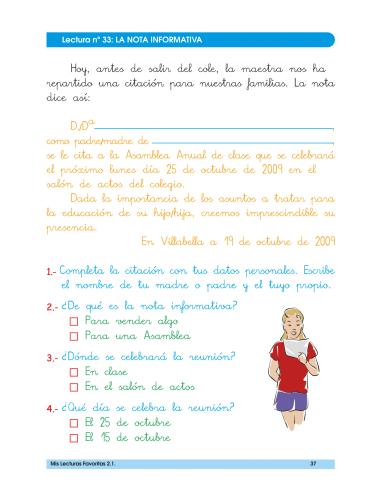 Lectura nº 33: LA NOTA INFORMATIVA
Hoy, antes de salir del cole, la maestra nos ha
repartido una citación para nuestras familias. La nota
dice así:
D./Dª ,
como padre/madre de ,
se le cita a la Asamblea Anual de clase que se celebrará
el próximo lunes día 25 de octubre de 2009 en el
salón de actos del colegio.
Dada la importancia de los asuntos a tratar para
la educación de su hijo/hija, creemos imprescindible su
presencia.
En Villabella a 19 de octubre de 2009
1.- Completa la citación con tus datos personales. Escribe
el nombre de tu madre o padre y el tuyo propio.
2.- ¿De qué es la nota informativa?
Para vender algo
Para una Asamblea
3.- ¿Dónde se celebrará la reunión?
En clase
En el salón de actos
4.- ¿Qué día se celebra la reunión?
El 25 de octubre
El 15 de octubre
Mis Lecturas Favoritas 2.1. 37